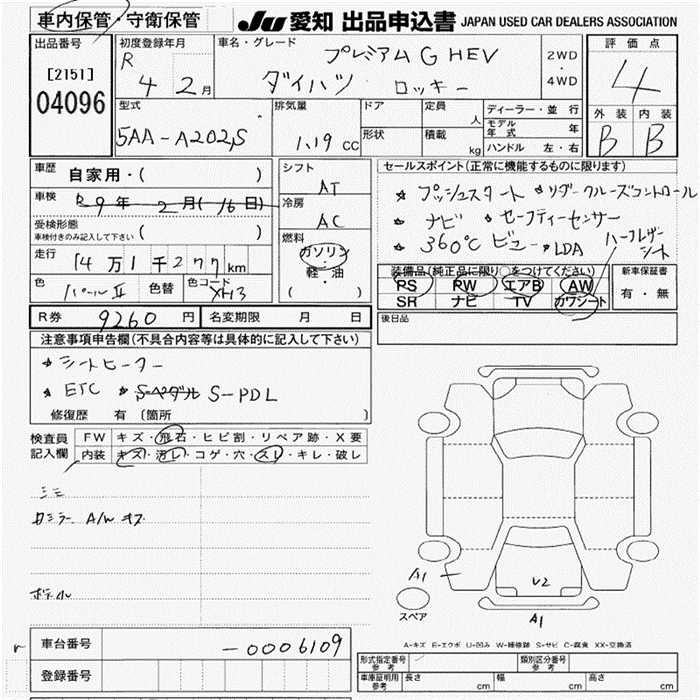 車内保管・守衛保管
JU 愛知 出品申込書 JAPAN USED CAR DEALERS ASSOCIATION
出品番号
[2151]
04096
初度登録年月
R 4 2月
車名・グレード
プレミアム G HEV
ダイハツ ロッキー
2WD
・
4WD
評価点
4
外装 内装
B B
型式
5AA-A202S
排気量
1.19 CC
ドア
形状
定員 人
積載 kg
ディーラー・並行
モデル年式 年
ハンドル 左・右
車歴 自家用・( )
車検 R 9年 2月(16日)
受検形態
車検付きのみ記入して下さい ( )
走行 14万1千277km
色 パールⅡ 色替 色コード XH13
シフト
AT
冷房
AC
燃料
ガソリン
・
軽・油
( )
セールスポイント(正常に機能するものに限ります)
★ プッシュスタート ★ リダークルーズコントロール
★ ナビ ★ セーフティーセンサー
★ 360℃ ビュー ★ LDA
ハーフレザーシート
装備品(純正品に限り○をつけてください)
PS PW エアB AW
SR ナビ TV カワシート
新車保証書
有・無
R券 9260円 名変期限 月 日
後日品
注意事項申告欄(不具合内容等は具体的に記入して下さい)
★ シートヒーター
★ ETC ★ S-ペダル S-PDL
修復歴 有 〔箇所 〕
検査員記入欄
FW キズ・飛石・ヒビ割・リペア跡・X要
内装 キズ・汚レ・コゲ・穴・スレ・キレ・破レ
A/W キズ
A1
U2
A1
スペア
A-キズ E-エクボ U-凹み W-補修跡 S-サビ C-腐食 XX-交換済
車台番号 -0006109
登録番号
型式指定番号 参考
類別区分番号 参考
車庫証明用 参考 長さ cm 幅 cm 高さ cm